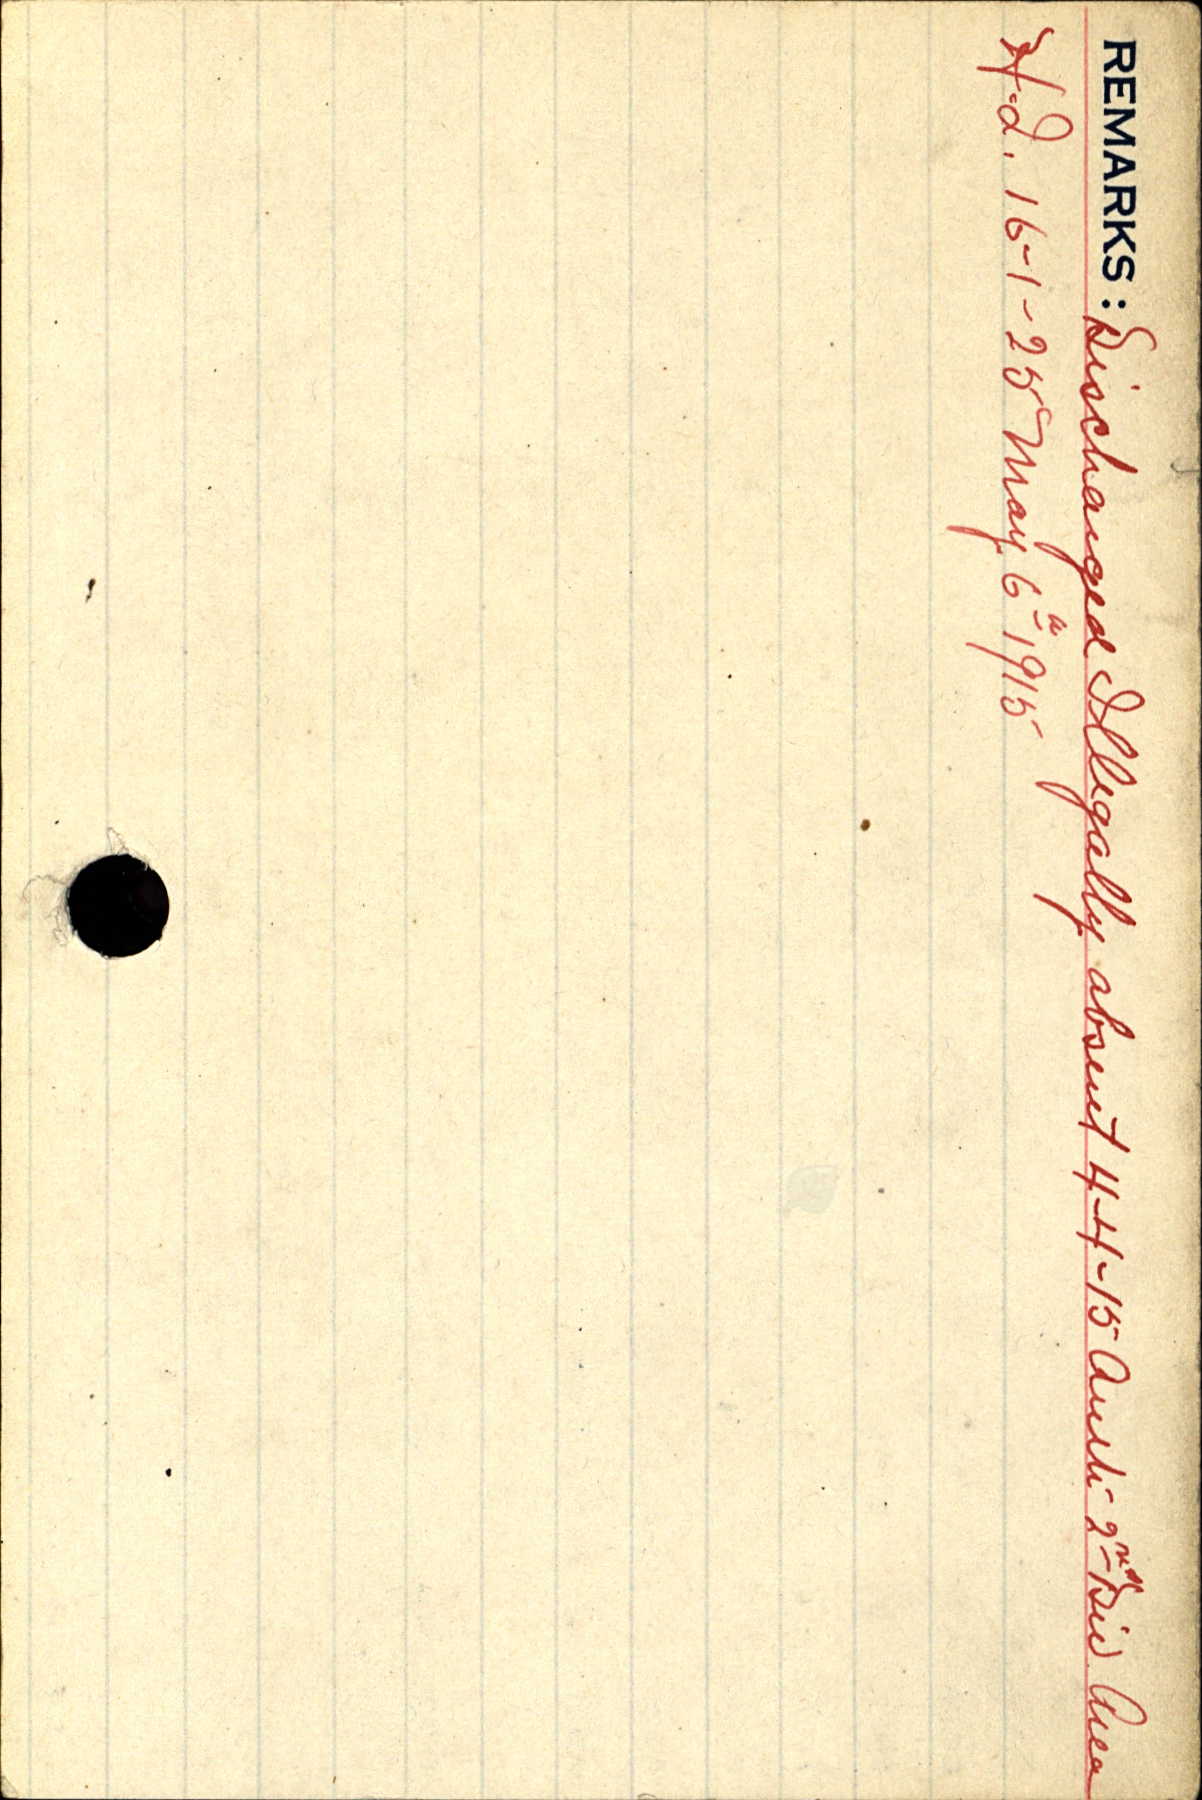 REMARKS: Discharged Illegally absent 4-4-15 Auth- 2nd Div Area
H.Q. 16-1-25 May 6th 1915